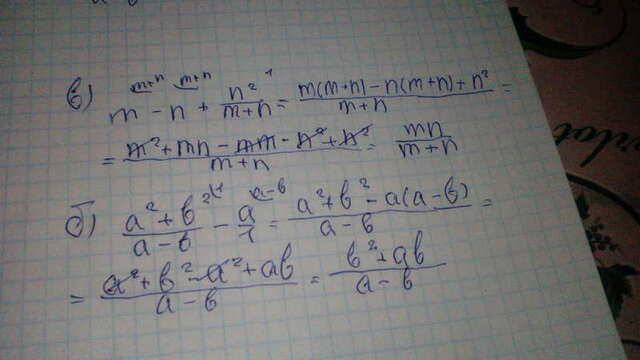 в) m^{\m+n} - n^{\m+n} + \frac{n²}{m+n}^{\1} = \frac{m(m+n) - n(m+n) + n²}{m+n} =
= \frac{m² + mn - nm - n² + n²}{m+n} = \frac{mn}{m+n}
б) \frac{a² + b²}{a - b}^{\1} - \frac{a}{1}^{\a-b} = \frac{a² + b² - a(a - b)}{a - b} =
= \frac{a² + b² - a² + ab}{a - b} = \frac{b² + ab}{a - b}